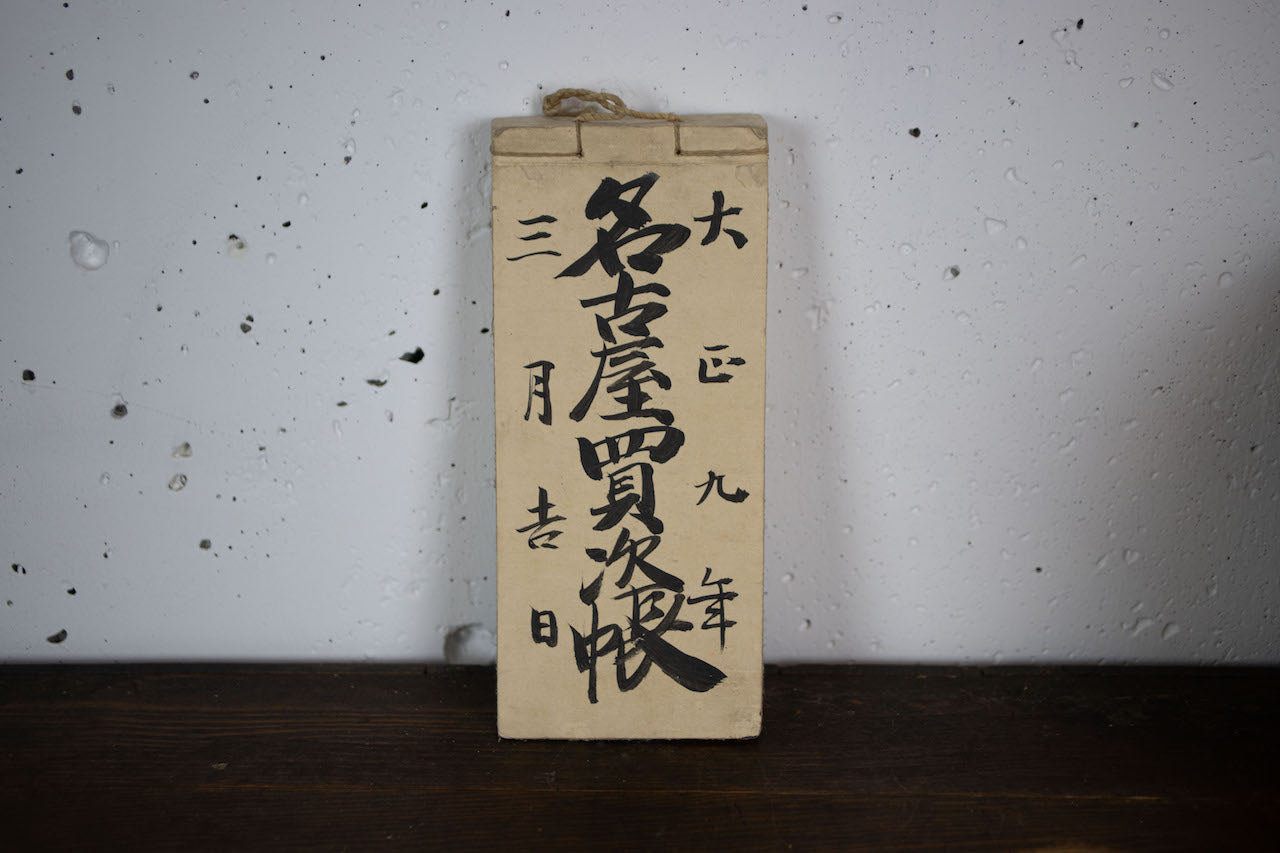 大正九年
名古屋買次帳
三月吉日